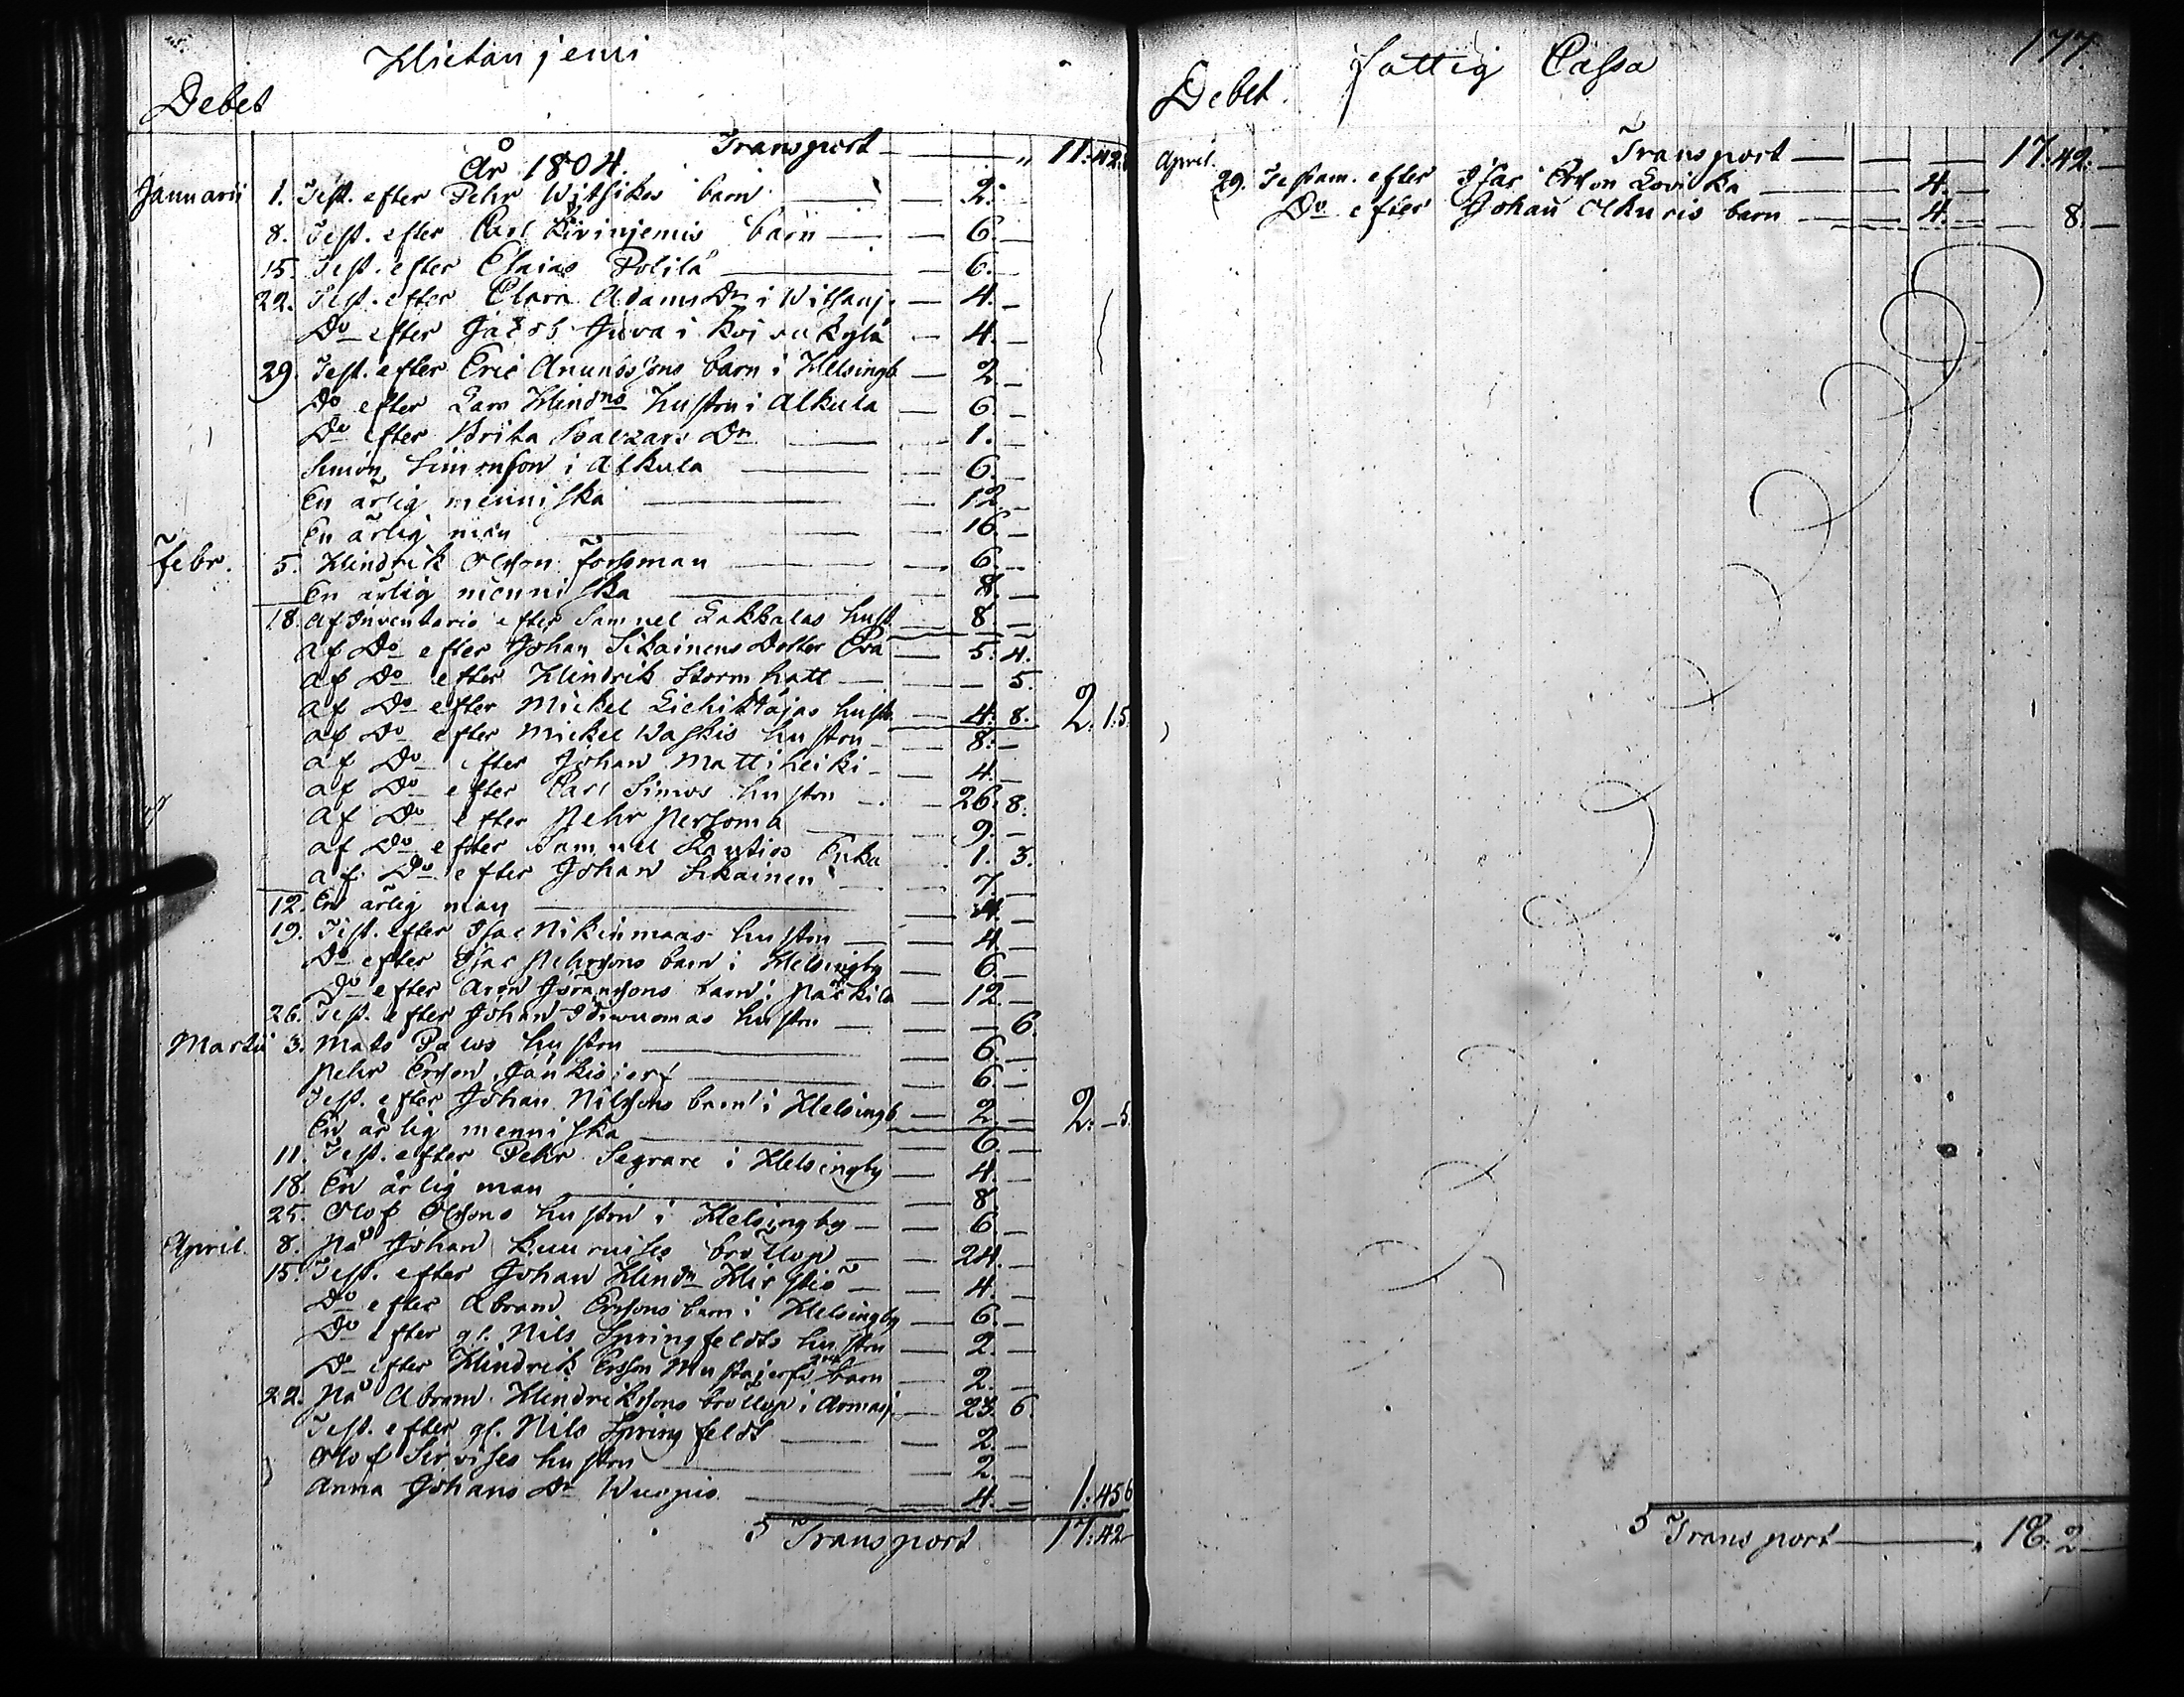 Hietaniemi
Debet
Transport — „ 11: 42.
År 1804.
Januarii 1. Test. efter Pehr barn — 2. —
8. Test. efter Carl Kivinjemis barn — 6. —
15. Test. efter Esaias Polila — 6. —
22. Test. efter Clara Adams Dr i Witsanj. — 4. —
Do efter Jacob Juva i Koivukylä — 4. —
29. Test. efter Eric Anundssons barn i Helsingb — 2. —
Do efter Lars Hindns hustru i Alkula — 6. —
Do efter Brita Balzars Dr — 1. —
Simon Simonson i Alkula — 6. —
En ärlig menniska — 12. —
En ärlig man — 16. —
Febr. 5. Hindrik Olsson Forssman — 6. —
En ärlig menniska — 8. —
18. Af Inventario efter Samuel Lakkalas hust. — 8. —
af Do efter Johan Sikainens Dotter Eva — 5. 4.
af Do efter Hindrik Stormhatt — — 5.
af Do efter Mickel hustr. — 4. 8. 2. 1.5.
af Do efter Mickel Waskis hustru — 8. —
af Do efter Johan Mattiheiki — 4. —
af Do efter Carl Simos hustru — 26. 8.
af Do efter Pehr Persoma — 9. —
af Do efter Samuel Rautios Enka 1. 3.
af Do efter Johan Sikainen — 7. —
12. En ärlig man — 4. —
19. Test. efter Isac Nikinmaas hustru — 4. —
Do efter Isac Pehrsons barn i Helsingby — 6. —
Do efter Aron Göransons barn i Päckilä — 12. —
26. Test. efter Johan hustru — — 6.
Martii 3. Mats Palos hustru — 6. —
Pehr Ersson Jänkisjerf — 6. —
Test. efter Johan Nilssons barn i Helsingb — 2. — 2. — 5.
En ärlig menniska — 6. —
11. Test. efter Pehr Segrare i Helsingby — 4. —
18. En ärlig man — 8
25. Olof Olssons hustru i Helsingby — 6. —
April. 8. På Johan bröllop — 24. —
15. Test. efter Johan Hindr Hirstiö — 4. —
Do efter Abram Erssons barn i Helsingby — 6. —
Do efter gl. Nils Springfeldts hustru — 2. —
Do efter Hindrik Ersson Mustajerfs barn — 2. —
22. På Abram Hindrikssons bröllop i Armasj. — 23. 6.
Test. efter gl. Nils Springfeldt — 2. —
Olof hustru — 2. —
Anna Johans Dr Wuopio — 4. — 1: 45 6
Transport 17: 42
177.
Fattig Cassa
Debet.
Transport — 17: 42. —
April. 29. Testam. efter Isac Ersson Lovikka — 4. —
Do efter Johan Olkuris barn — 4. — 8. —
Transport — 18. 2 —